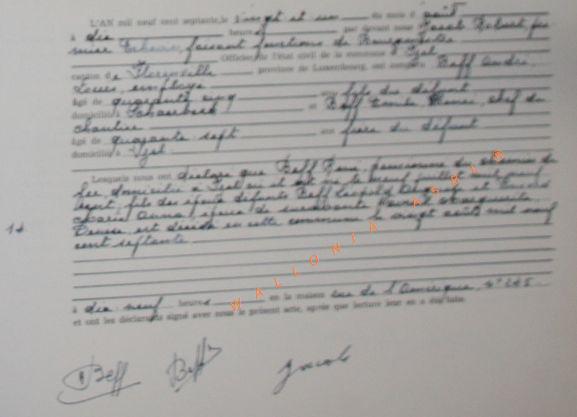 L'AN mil neuf cent septante, le vingt et un du mois d'août
à dix heures par devant nous Jacob Robert, pre
mier Echevin, faisant fonctions de Bourgmestre
Officier de l'état civil de la commune d'Izel
canton de Florenville province de Luxembourg, ont comparu Beff André,
Louis, employé
âgé de quarante cinq ans fils du défunt
domicilié à Schaerbeek et Beff Emile Henri, chef de
chantier
âgé de quarante sept ans du défunt
domicilié à Izel
Lesquels nous ont déclaré que Beff René pensionné du chemin de
fer domicilié à Izel où il est né le neuf juillet mil neuf
cent, fils des époux défunts Beff Léopold et
Marie Anna, époux de survivante Marguerite
est décédé en cette commune le vingt août mil neuf
14
cent septante
à dix neuf heures en la maison rue de l'Amérique, n° 245
et ont les déclarants signé avec nous le présent acte, après que lecture leur en a été faite.
Beff Beff Jacob
WALLONIA ASBLD